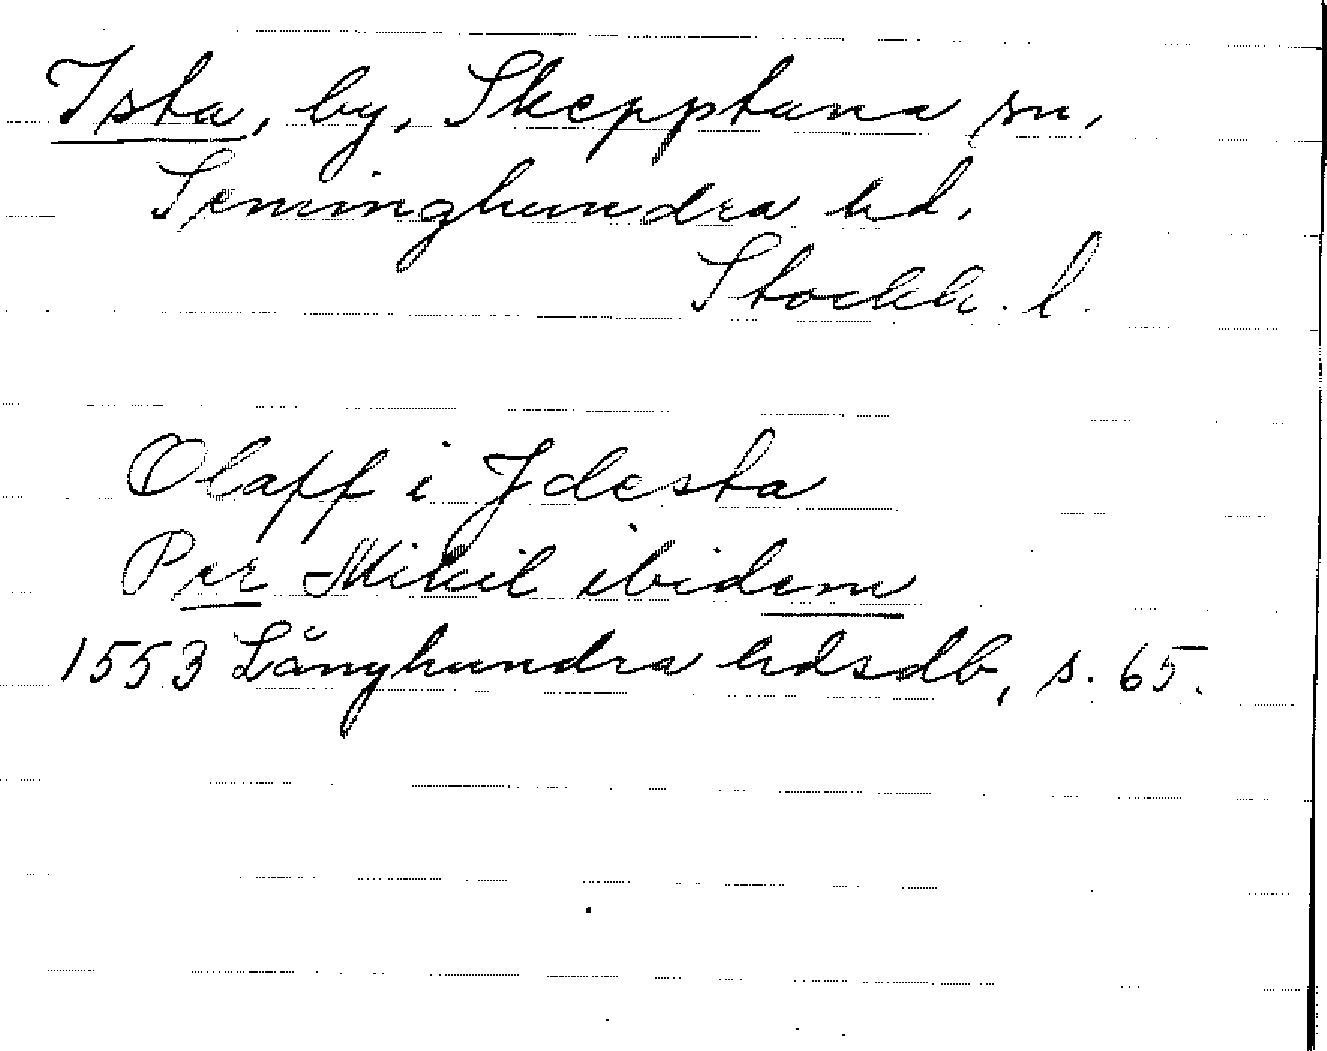 Ista, by, Skepptuna sn,
Seminghundra hd.
Stockh. l.
Olaff i Jdesta
Per Mikil ibidem
1553 Långhundra hdsdb, s. 65.